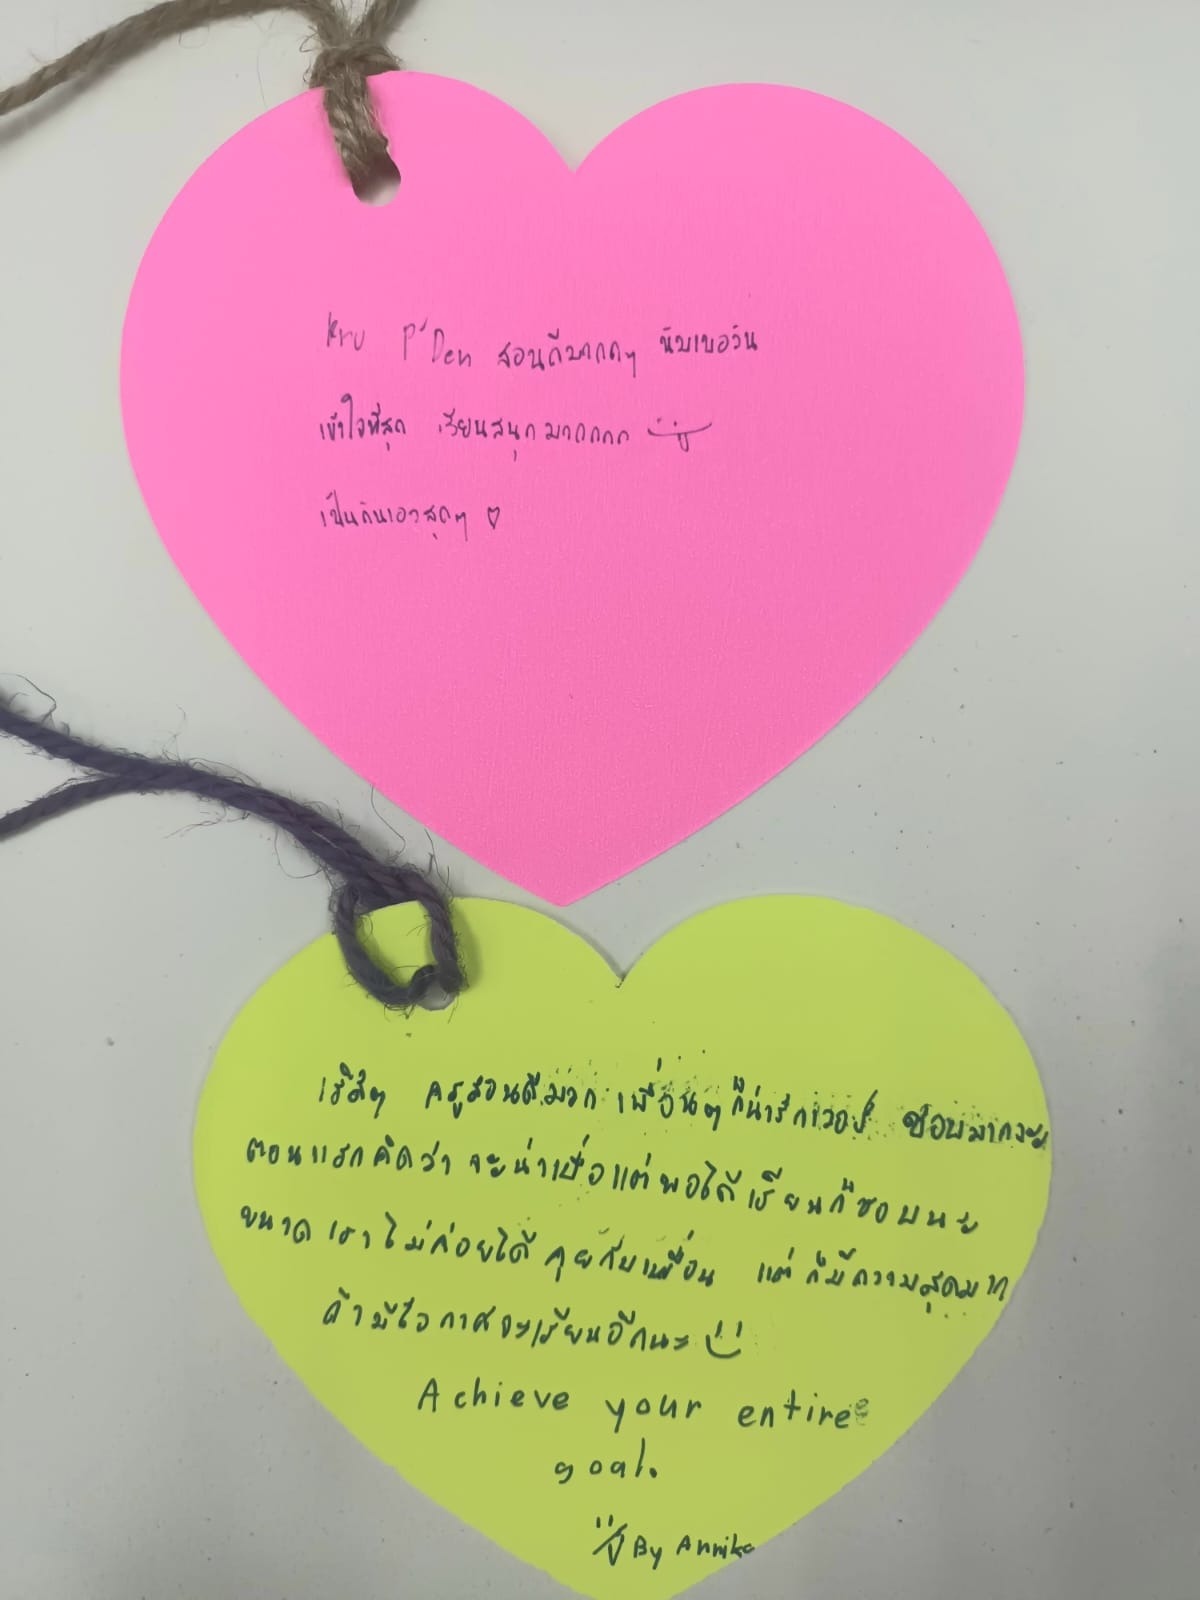 kru P'Den สอนดีมากกๆ นัมเบอวัน
เข้าใจที่สุด เรียนสนุกมากกกก
เป็นกันเองสุดๆ ♡
เริ่ดๆ ครูสอนดีมาก เพื่อนๆก็น่ารักเวอร์ ชอบมากจะ
ตอนแรกคิดว่า จะน่าเบื่อแต่พอได้เรียนก็ชอบนะ
ขนาดเราไม่ค่อยได้คุยกับเพื่อน แต่ก็มีความสุขมาก
ถ้ามีโอกาสจะเรียนอีกนะ
Achieve your entire
goal.
By Annika